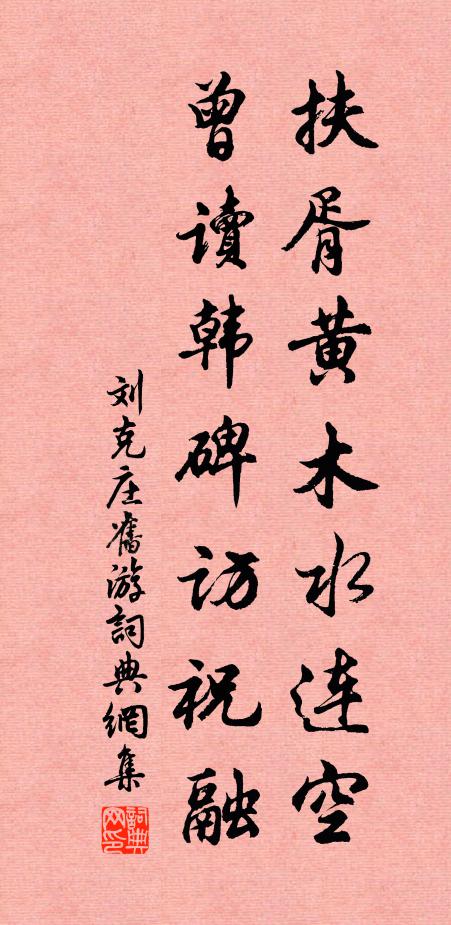 扶胥黄木水连空
曾读韩碑访祝融
刘克庄旧游词典网集
词典网印